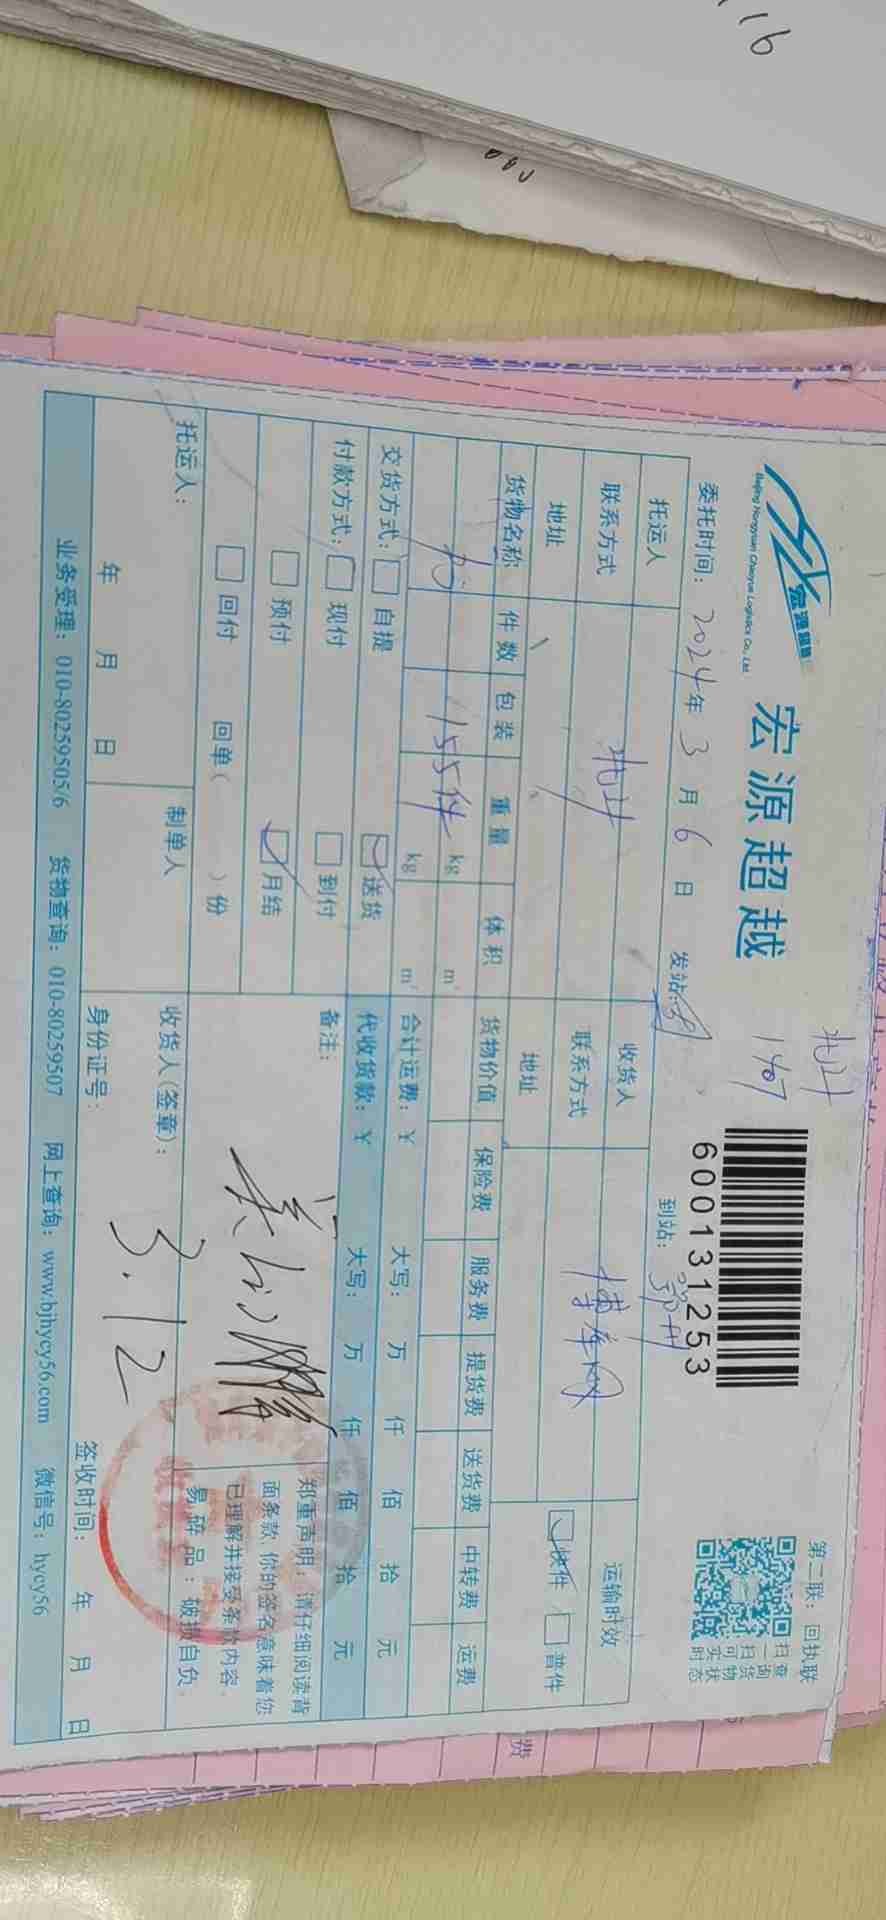 16
宏源超越
Beijing Hongyuan Chaoyue Logistics Co., Ltd.
宏源超越
北斗
1407
6000131253
第二联：回执联
扫一扫可实时
查询货物状态
委托时间：2024年3月6日 发站： 到站：郑州
托运人 北斗 收货人 博库网 运输时效
联系方式 联系方式 快件 普件
地址 地址
货物名称 件数 包装 重量 体积 货物价值 保险费 服务费 提货费 送货费 中转费 运费
书 155件 kg m³
kg m³ 合计运费：￥ 大写： 万 仟 佰 拾 元
交货方式： 自提 送货 代收货款：￥ 大写： 万 仟 佰 拾 元
付款方式： 现付 到付 备注：
预付 月结
回付 回单（ ）份
郑重声明：请仔细阅读背
面条款，你的签名意味着您
已理解并接受条款内容。
易碎品：破损自负。
托运人： 制单人 收货人(签章)：
3.12
年 月 日 身份证号： 签收时间： 年 月 日
业务受理：010-80259505/6 货物查询：010-80259507 网上查询：www.bjhycy56.com 微信号：hycy56
费